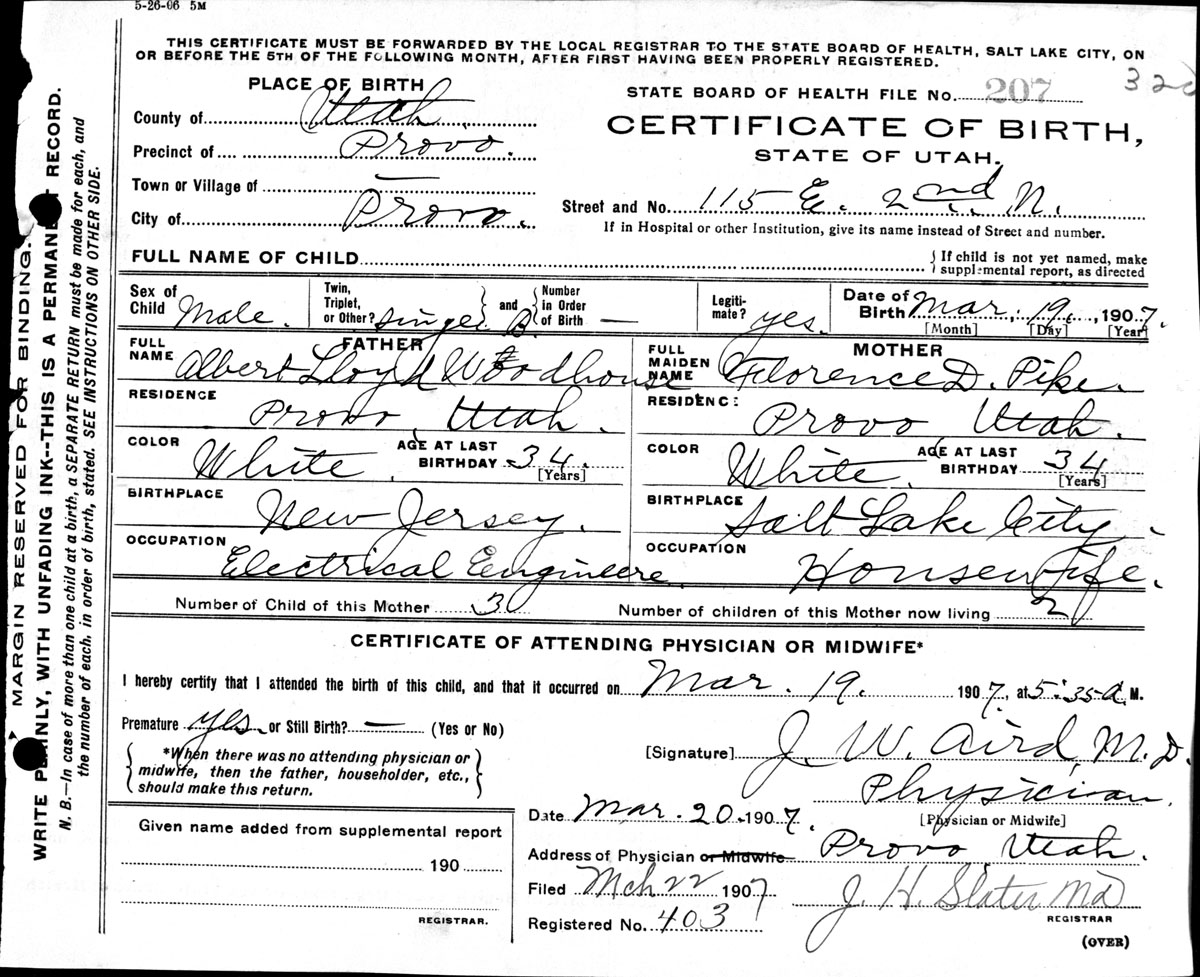 5-26-06 5M
THIS CERTIFICATE MUST BE FORWARDED BY THE LOCAL REGISTRAR TO THE STATE BOARD OF HEALTH, SALT LAKE CITY, ON
OR BEFORE THE 5TH OF THE FOLLOWING MONTH, AFTER FIRST HAVING BEEN PROPERLY REGISTERED.
PLACE OF BIRTH
STATE BOARD OF HEALTH FILE No. 207
County of Utah.
CERTIFICATE OF BIRTH,
Precinct of Provo.
STATE OF UTAH.
Town or Village of —
City of Provo.
Street and No. 115 E. 2nd N.
If in Hospital or other Institution, give its name instead of Street and number.
FULL NAME OF CHILD
If child is not yet named, make
supplemental report, as directed
Sex of Child Male.
Twin, Triplet, or Other? single
and Number in Order of Birth —
Legiti-mate? yes.
Date of Birth Mar. 19. 1907.
[Month] [Day] [Year]
FATHER
FULL NAME Albert Lloyd Woodhouse
RESIDENCE Provo, Utah.
COLOR White. AGE AT LAST BIRTHDAY 34. [Years]
BIRTHPLACE New Jersey.
OCCUPATION Electrical Engineere
MOTHER
FULL MAIDEN NAME Florence D. Pike.
RESIDENCE Provo Utah.
COLOR White. AGE AT LAST BIRTHDAY 34 [Years]
BIRTHPLACE Salt Lake City.
OCCUPATION Housewife.
Number of Child of this Mother 3 Number of children of this Mother now living 2
CERTIFICATE OF ATTENDING PHYSICIAN OR MIDWIFE*
I hereby certify that I attended the birth of this child, and that it occurred on Mar. 19. 1907, at 5:35 a. M.
Premature yes. or Still Birth? — (Yes or No)
*When there was no attending physician or
midwife, then the father, householder, etc.,
should make this return.
[Signature] J. W. Aird, M.D.
Physician.
[Physician or Midwife]
Date Mar. 20. 1907.
Address of Physician or Midwife Provo Utah.
Filed Mch 22 1907 J. H. Slater Md
REGISTRAR
Registered No. 403
(OVER)
Given name added from supplemental report
190
REGISTRAR.
MARGIN RESERVED FOR BINDING.
WRITE PLAINLY, WITH UNFADING INK--THIS IS A PERMANENT RECORD.
N. B.—In case of more than one child at a birth, a SEPARATE RETURN must be made for each, and
the number of each, in order of birth, stated. SEE INSTRUCTIONS ON OTHER SIDE.